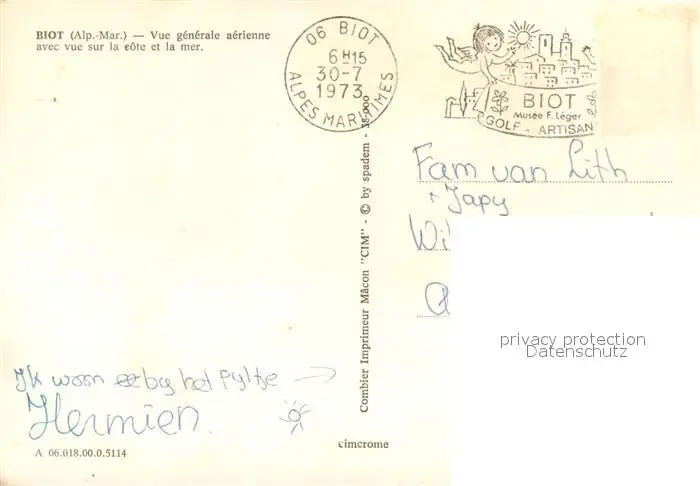 BIOT (Alp.-Mar.) — Vue générale aérienne
avec vue sur la côte et la mer.
06 BIOT
6 H 15
30-7
1973
ALPES MARITIMES
BIOT
Musée F. Léger
GOLF - ARTISAN
Fam van Lith
+ Japy
Wi
Combier Imprimeur Mâcon "CIM" - © by spadem - 38-000
privacy protection
Datenschutz
Ik woon by het Pyltje →
Hermien.
A 06.018.00.0.5114
cimcrome